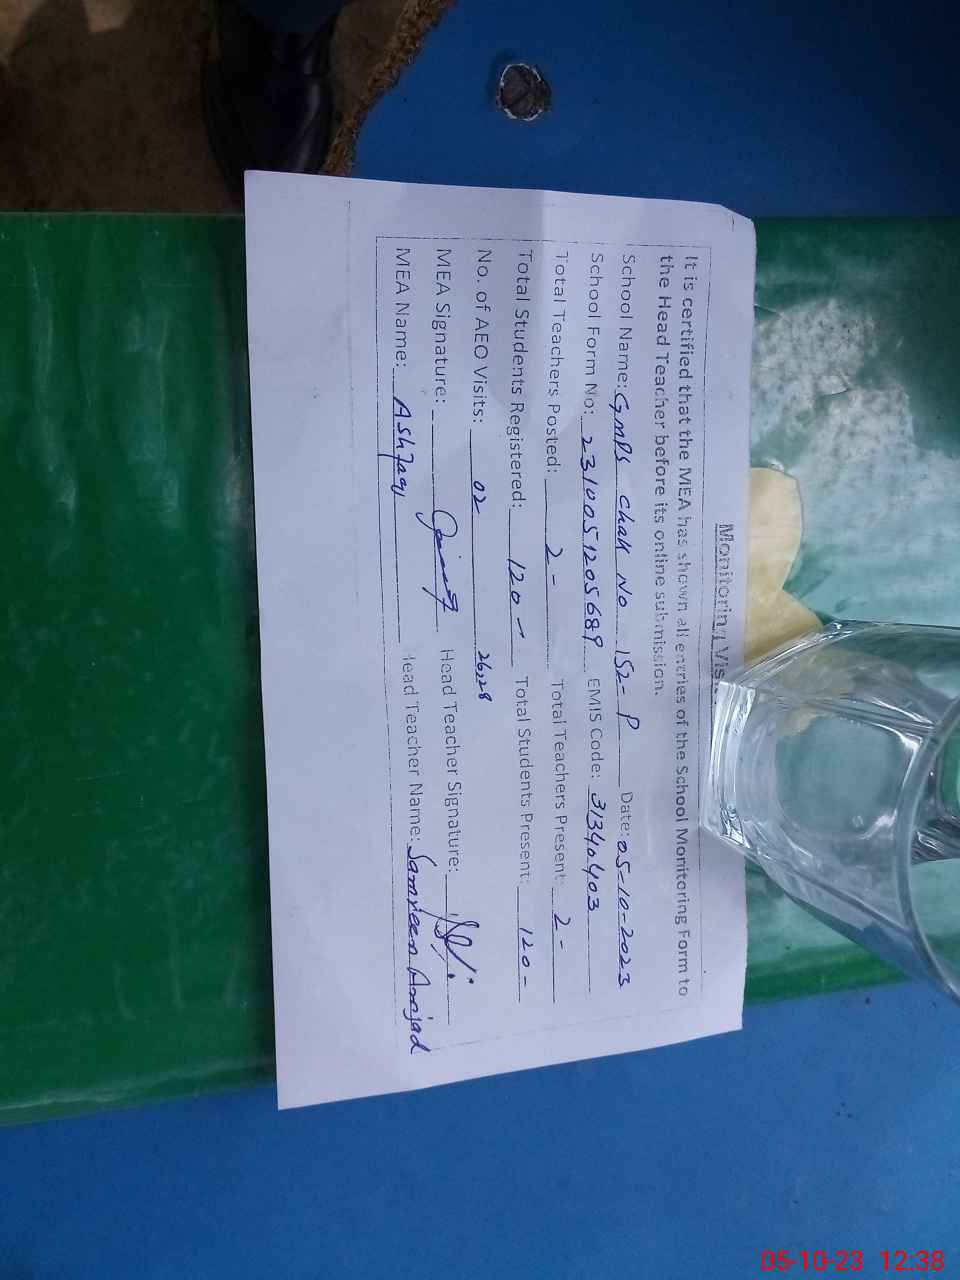 Monitoring Vis
It is certified that the MEA has shown all entries of the School Monitoring Form to
the Head Teacher before its online submission.
School Name: GMPS Chak No 152-P Date: 05-10-2023
School Form No: 2310051205689 EMIS Code: 31340403
Total Teachers Posted: 2- Total Teachers Present: 2-
Total Students Registered: 120- Total Students Present: 120-
No. of AEO Visits: 02 26,28
MEA Signature: Head Teacher Signature:
MEA Name: Ashfaq Head Teacher Name: Samreen Amjad
05-10-23 12:38